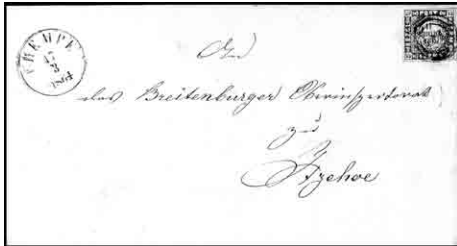 CREMPE
17
3
1864
An
das Breitenburger Oberinspectorat
zu
Itzehoe